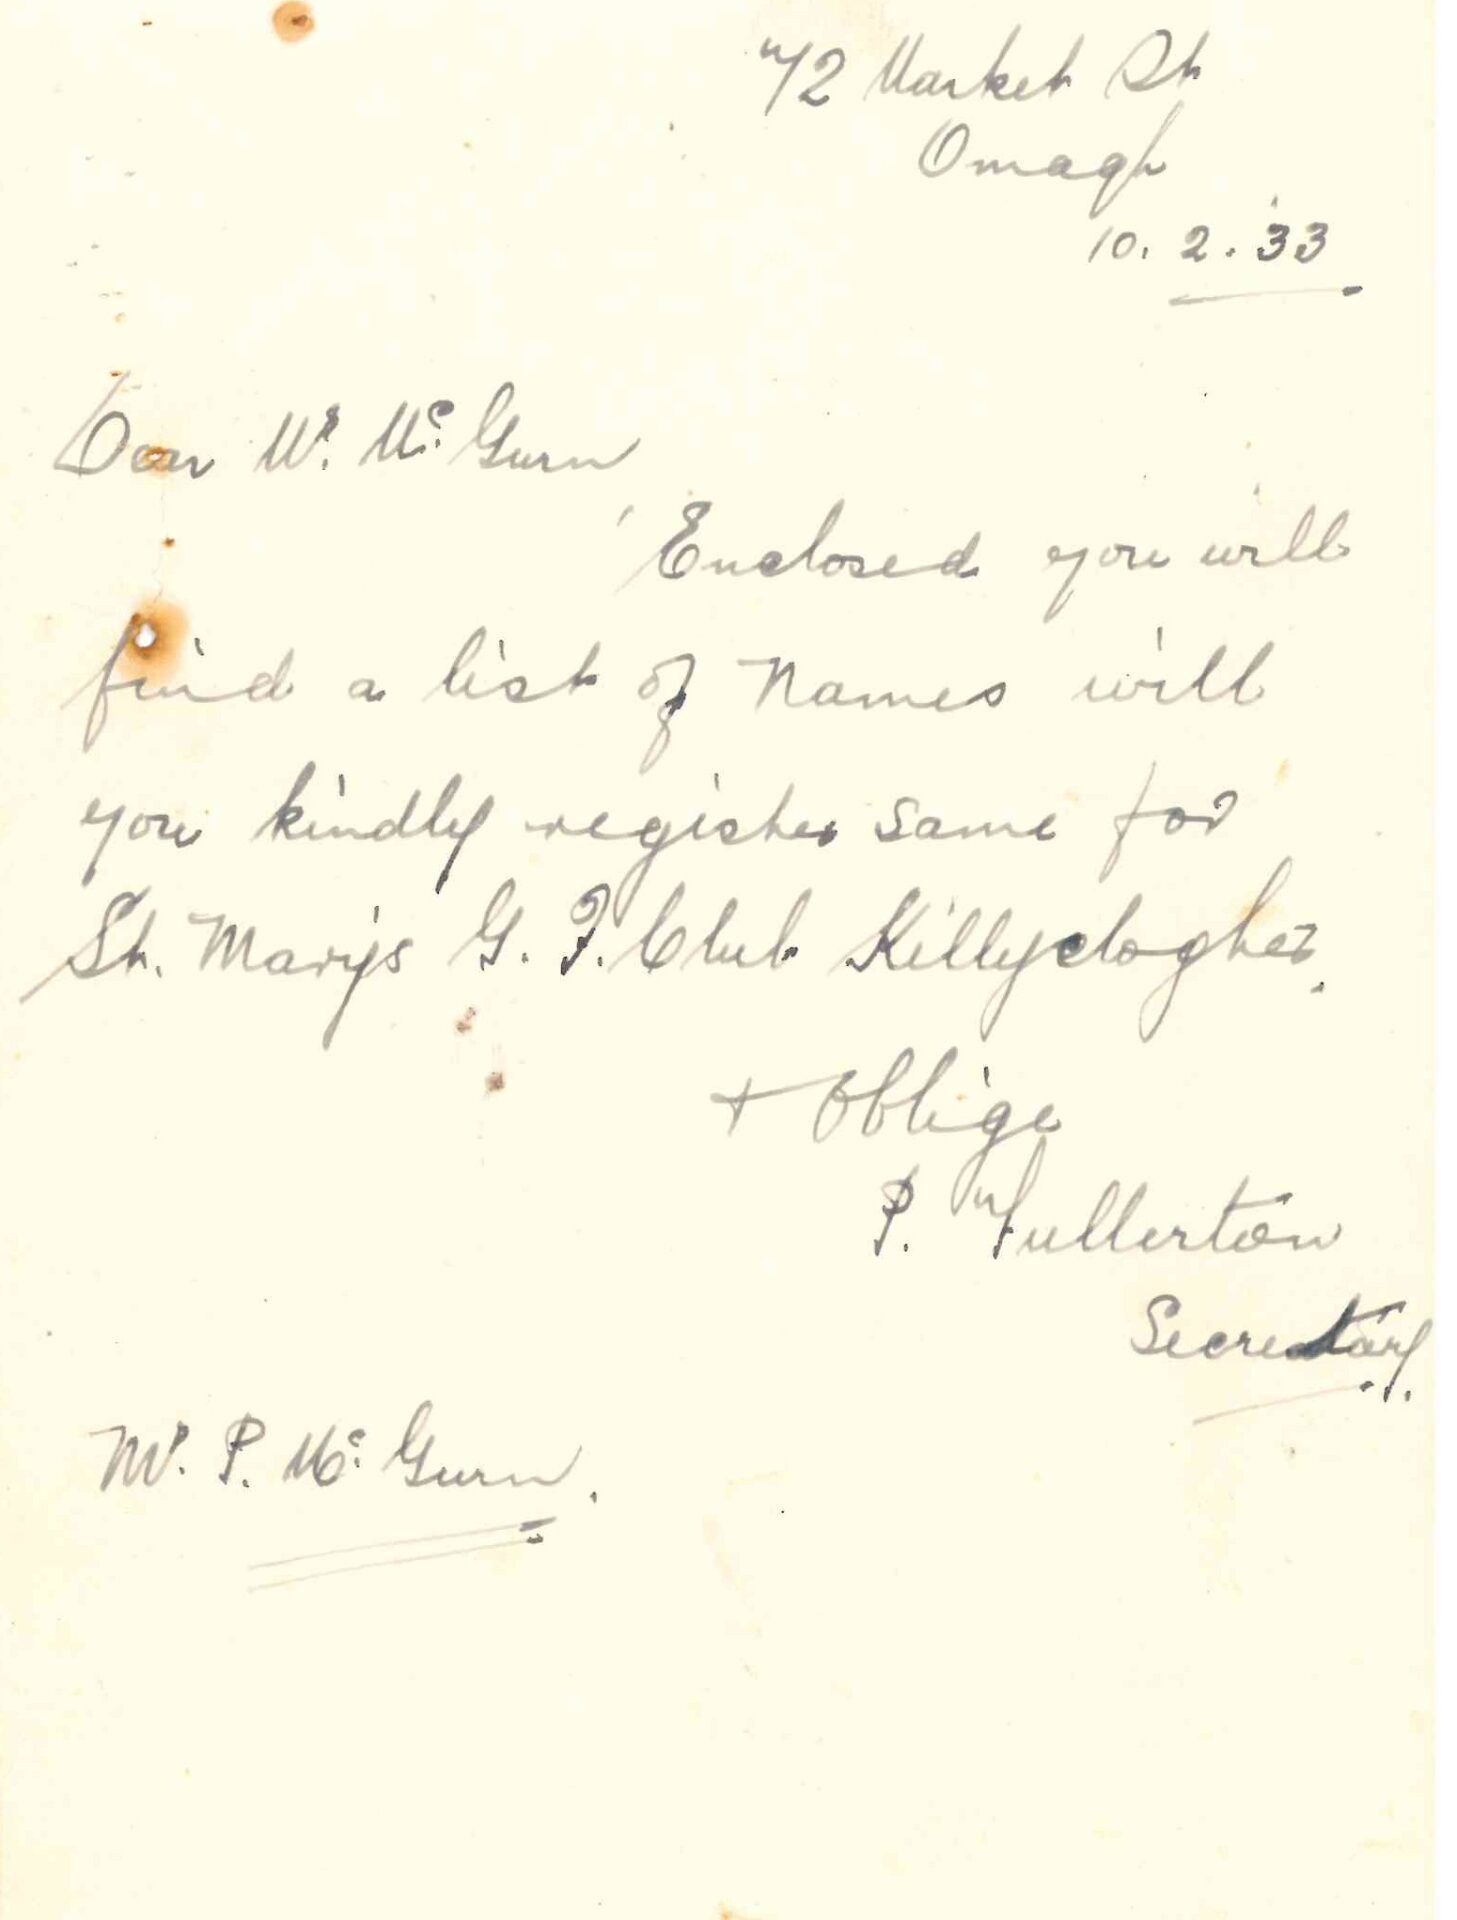 72 Market St
Omagh
10. 2. 33
Dear Mr. Mc. Gurn
Enclosed you will
find a list of Names will
you kindly register same for
St. Marys G. F. Club Killyclogher.
+ Oblige
P. Fullerton
Secretary.
Mr. P. Mc. Gurn.